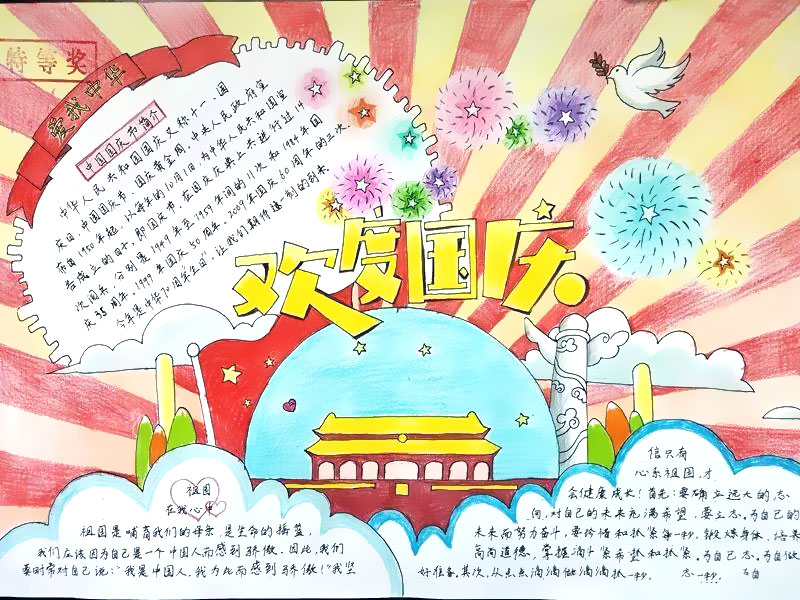 特等奖
爱我中华
中国国庆节简介
中华人民共和国国庆又称十一、国
庆日、中国国庆节、国庆黄金周。中央人民政府宣
布自1950年起，以每年的10月1日为中华人民共和国宣
告成立的日子，即国庆节。在国庆庆典上共进行过14
次阅兵，分别是1949年至1959年间的11次和1984年国
庆35周年、1999年国庆50周年、2009年国庆60周年的三次。
今年是中华70周年生日，让我们期待这一刻的到来
欢度国庆
祖国
在我心中
祖国是哺育我们的母亲，是生命的摇篮，
我们应该因为自己是一个中国人而感到骄傲。因此，我们
要时常对自己说：“我是中国人，我为此而感到骄傲！”我坚
信只有
心系祖国，才
会健康成长！首先，要确立远大的志
向，对自己的未来充满希望，要立志，为自己的
未来而努力奋斗，要珍惜和抓紧每一秒，锻炼身体，培养
高尚道德，掌握
好准备。其次，从点点滴滴做